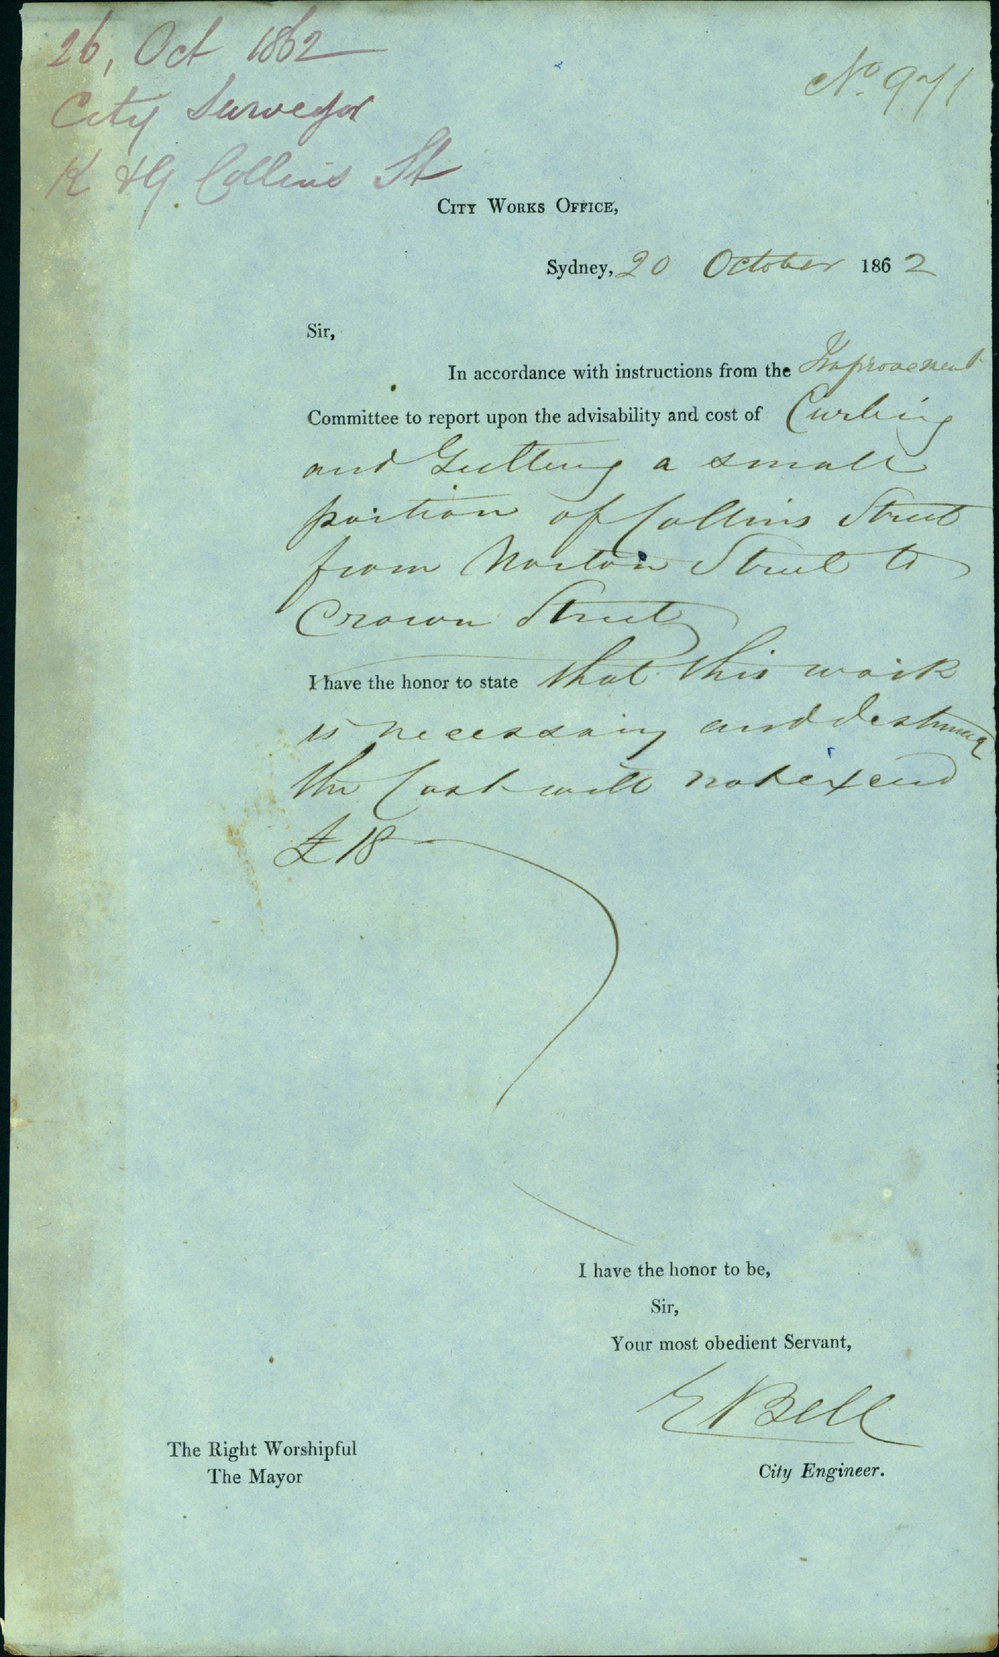 26, Oct 1862
City Surveyor
K & G Collins St
No. 971
CITY WORKS OFFICE,
Sydney, 20 October 1862
Sir,
In accordance with instructions from the Improvement
Committee to report upon the advisability and cost of Curbing
and Guttering a small
portion of Collins Street
from Norton Street to
Crown Street
I have the honor to state that this work
is necessary and I estimate
the Cost will not exceed
£18
I have the honor to be,
Sir,
Your most obedient Servant,
E Bell
City Engineer.
The Right Worshipful
The Mayor